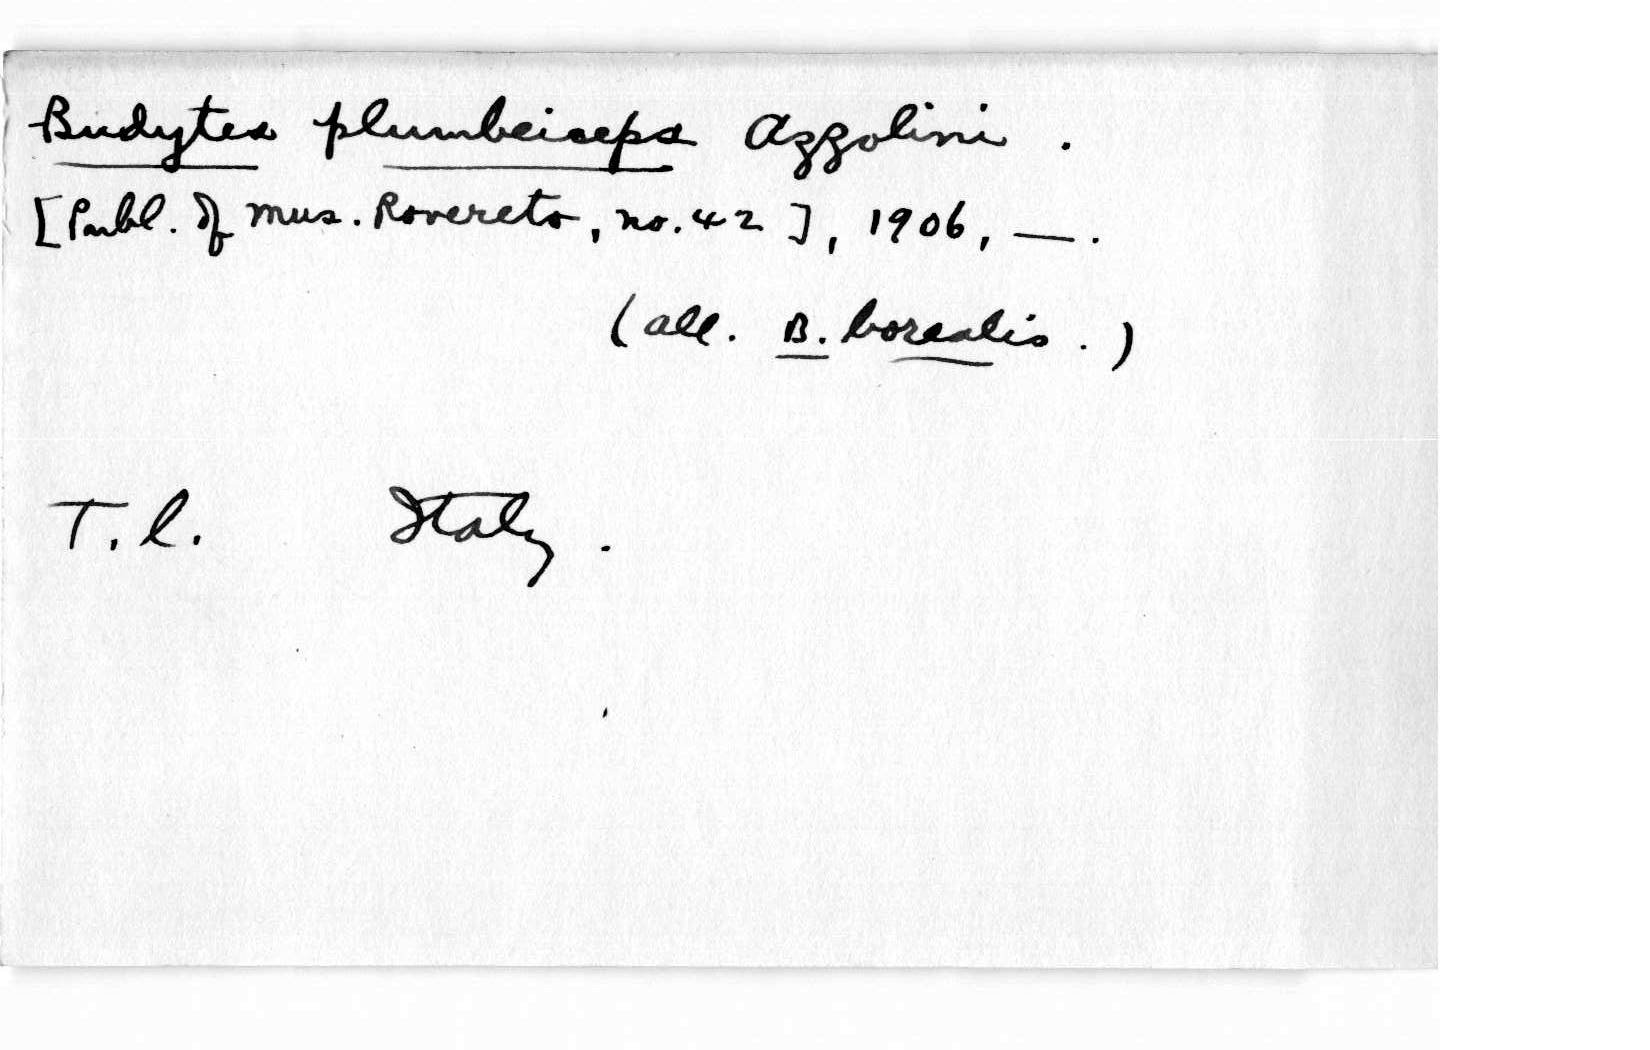 Budytes plumbeiceps Azzolini.
[Publ. of Mus. Rovereto, no. 42], 1906, —.
(all. B. borealis.)
T. l. Italy.